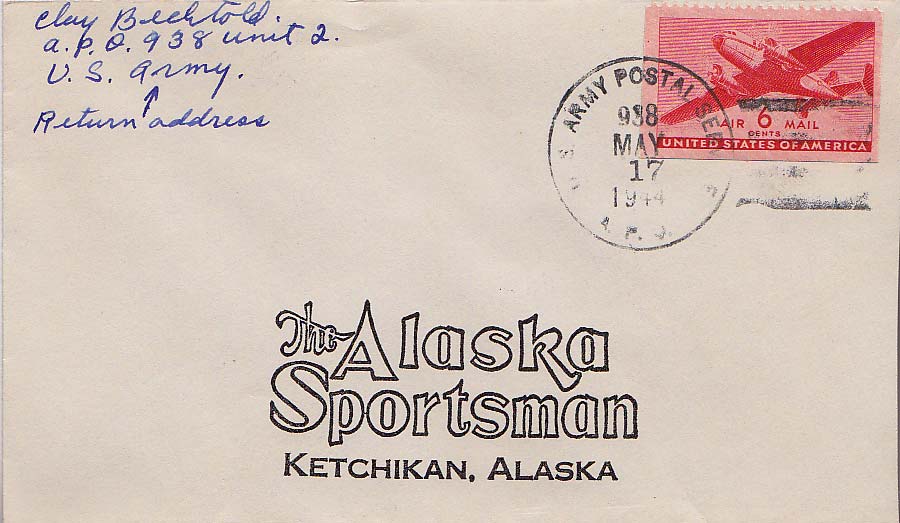 Clay Bechtold.
A.P.O. 938 Unit 2.
U.S. Army.
Return address
U.S. ARMY POSTAL SERVICE
938
MAY
17
1944
A.P.O.
AIR 6 MAIL
CENTS
UNITED STATES OF AMERICA
The Alaska
Sportsman
KETCHIKAN, ALASKA